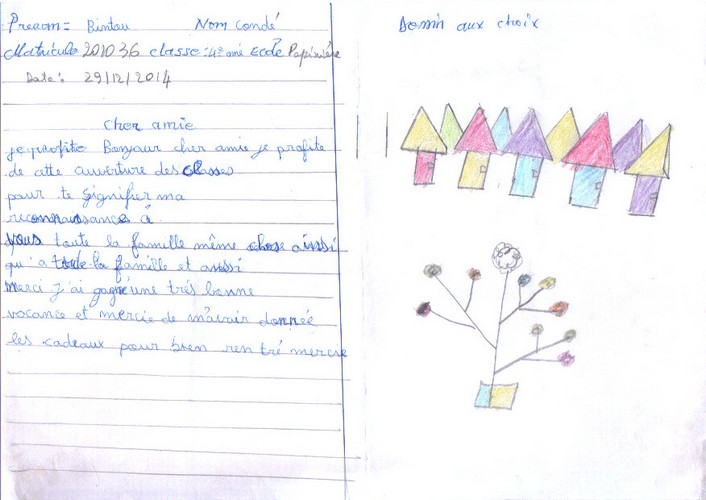 Prenom = Bintou Nom Condé
Matricule 201036 classe : 4e amé Ecole
Date : 29/12/2014
Cher amie
je profite Bonjour cher amie je profite
de cette auverture des classes
pour te signifier ma
reconnaissances à
vous toute la famille même chose ainssi
qu'a toute la famille et aussi
Merci j'ai gagné une trés bonne
vacance et mercie de m'avoir donnée
les cadeaux pour bien rentré mercie
Demin aux choix